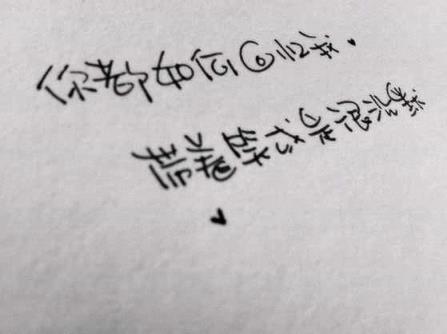 你都如何回忆我.
带着笑或是很沉默